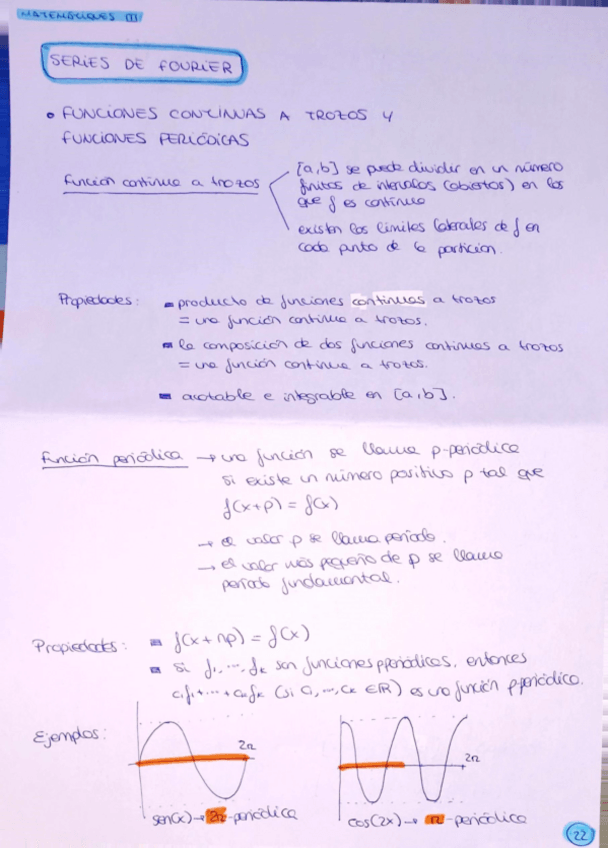 MATEMÁTICAS III
SERIES DE FOURIER
• FUNCIONES CONTINUAS A TROZOS Y
FUNCIONES PERIÓDICAS
Función continua a trozos
[a,b] se puede dividir en un número
finitos de intervalos (abiertos) en los
que f es continua
existen los límites laterales de f en
cada punto de la partición.
Propiedades:
- producto de funciones continuas a trozos
= una función continua a trozos.
- la composición de dos funciones continuas a trozos
= una función continua a trozos.
- acotable e integrable en [a,b].
Función periódica → una función se llama p-periódica
si existe un número positivo p tal que
f(x+p) = f(x)
→ el valor p se llama período.
→ el valor más pequeño de p se llama
período fundamental.
Propiedades: - f(x+np) = f(x)
- si f1, ..., fk son funciones p periódicas, entonces
c1f1 + ... + ckfk (si c1, ..., ck ∈ ℝ) es una función p periódica.
Ejemplos:
2π
2π
sen(x) → 2π-periódica
cos(2x) → π-periódica
22